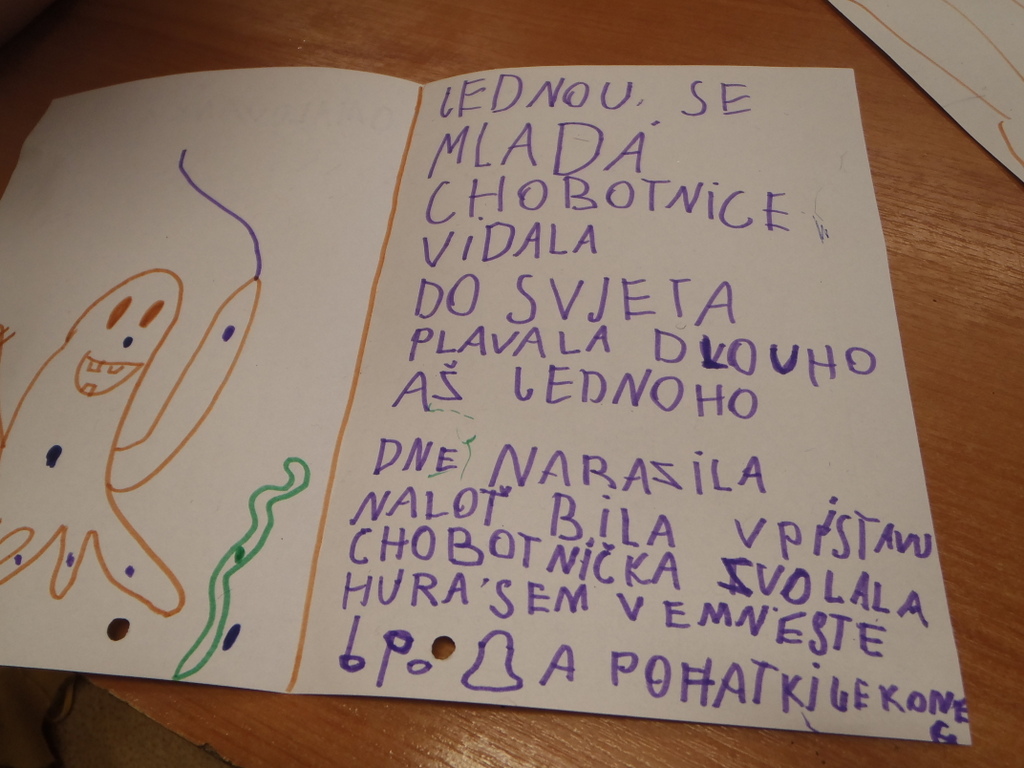 JEDNOU. SE
MLADÁ
CHOBOTNiCE
ViDALA
DO SVJETA
PLAVALA DLOUHO
AŠ JEDNOHO
DNE NARASiLA
NALOŤ BiLA V PiSTAVU
CHOBOTNiČKA ZVOLALA
HURA'SEM V EMNESTE
A POHATKi JE KONE
C